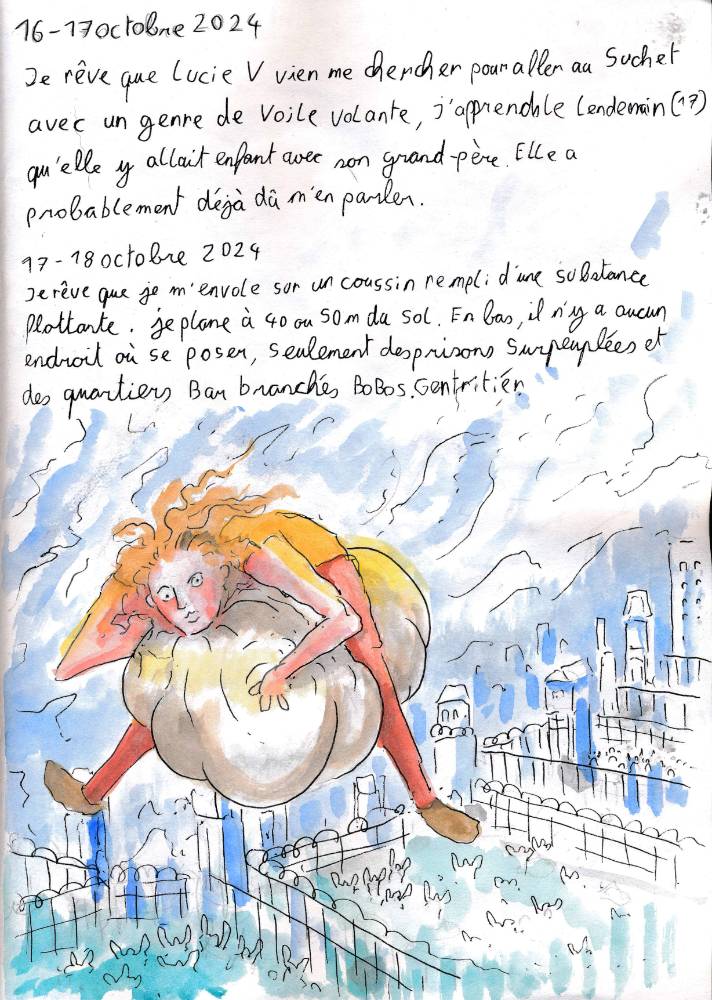 16-17 octobre 2024
Je rêve que Lucie V vien me chercher pour aller au Suchet
avec un genre de Voile volante, j'apprend le Lendemain (17)
qu'elle y allait enfant avec son grand-père. Elle a
probablement déjà dû m'en parler.
17-18 octobre 2024
Je rêve que je m'envole sur un coussin rempli d'une substance
flottante. je plane à 40 ou 50 m du sol. En bas, il n'y a aucun
endroit où se poser, seulement des prisons surpeuplées et
des quartiers Bar branchés BoBos. Gentritién